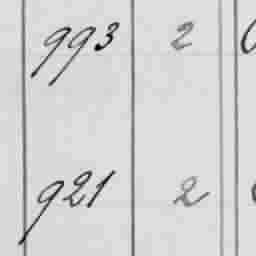 993 2
921 2